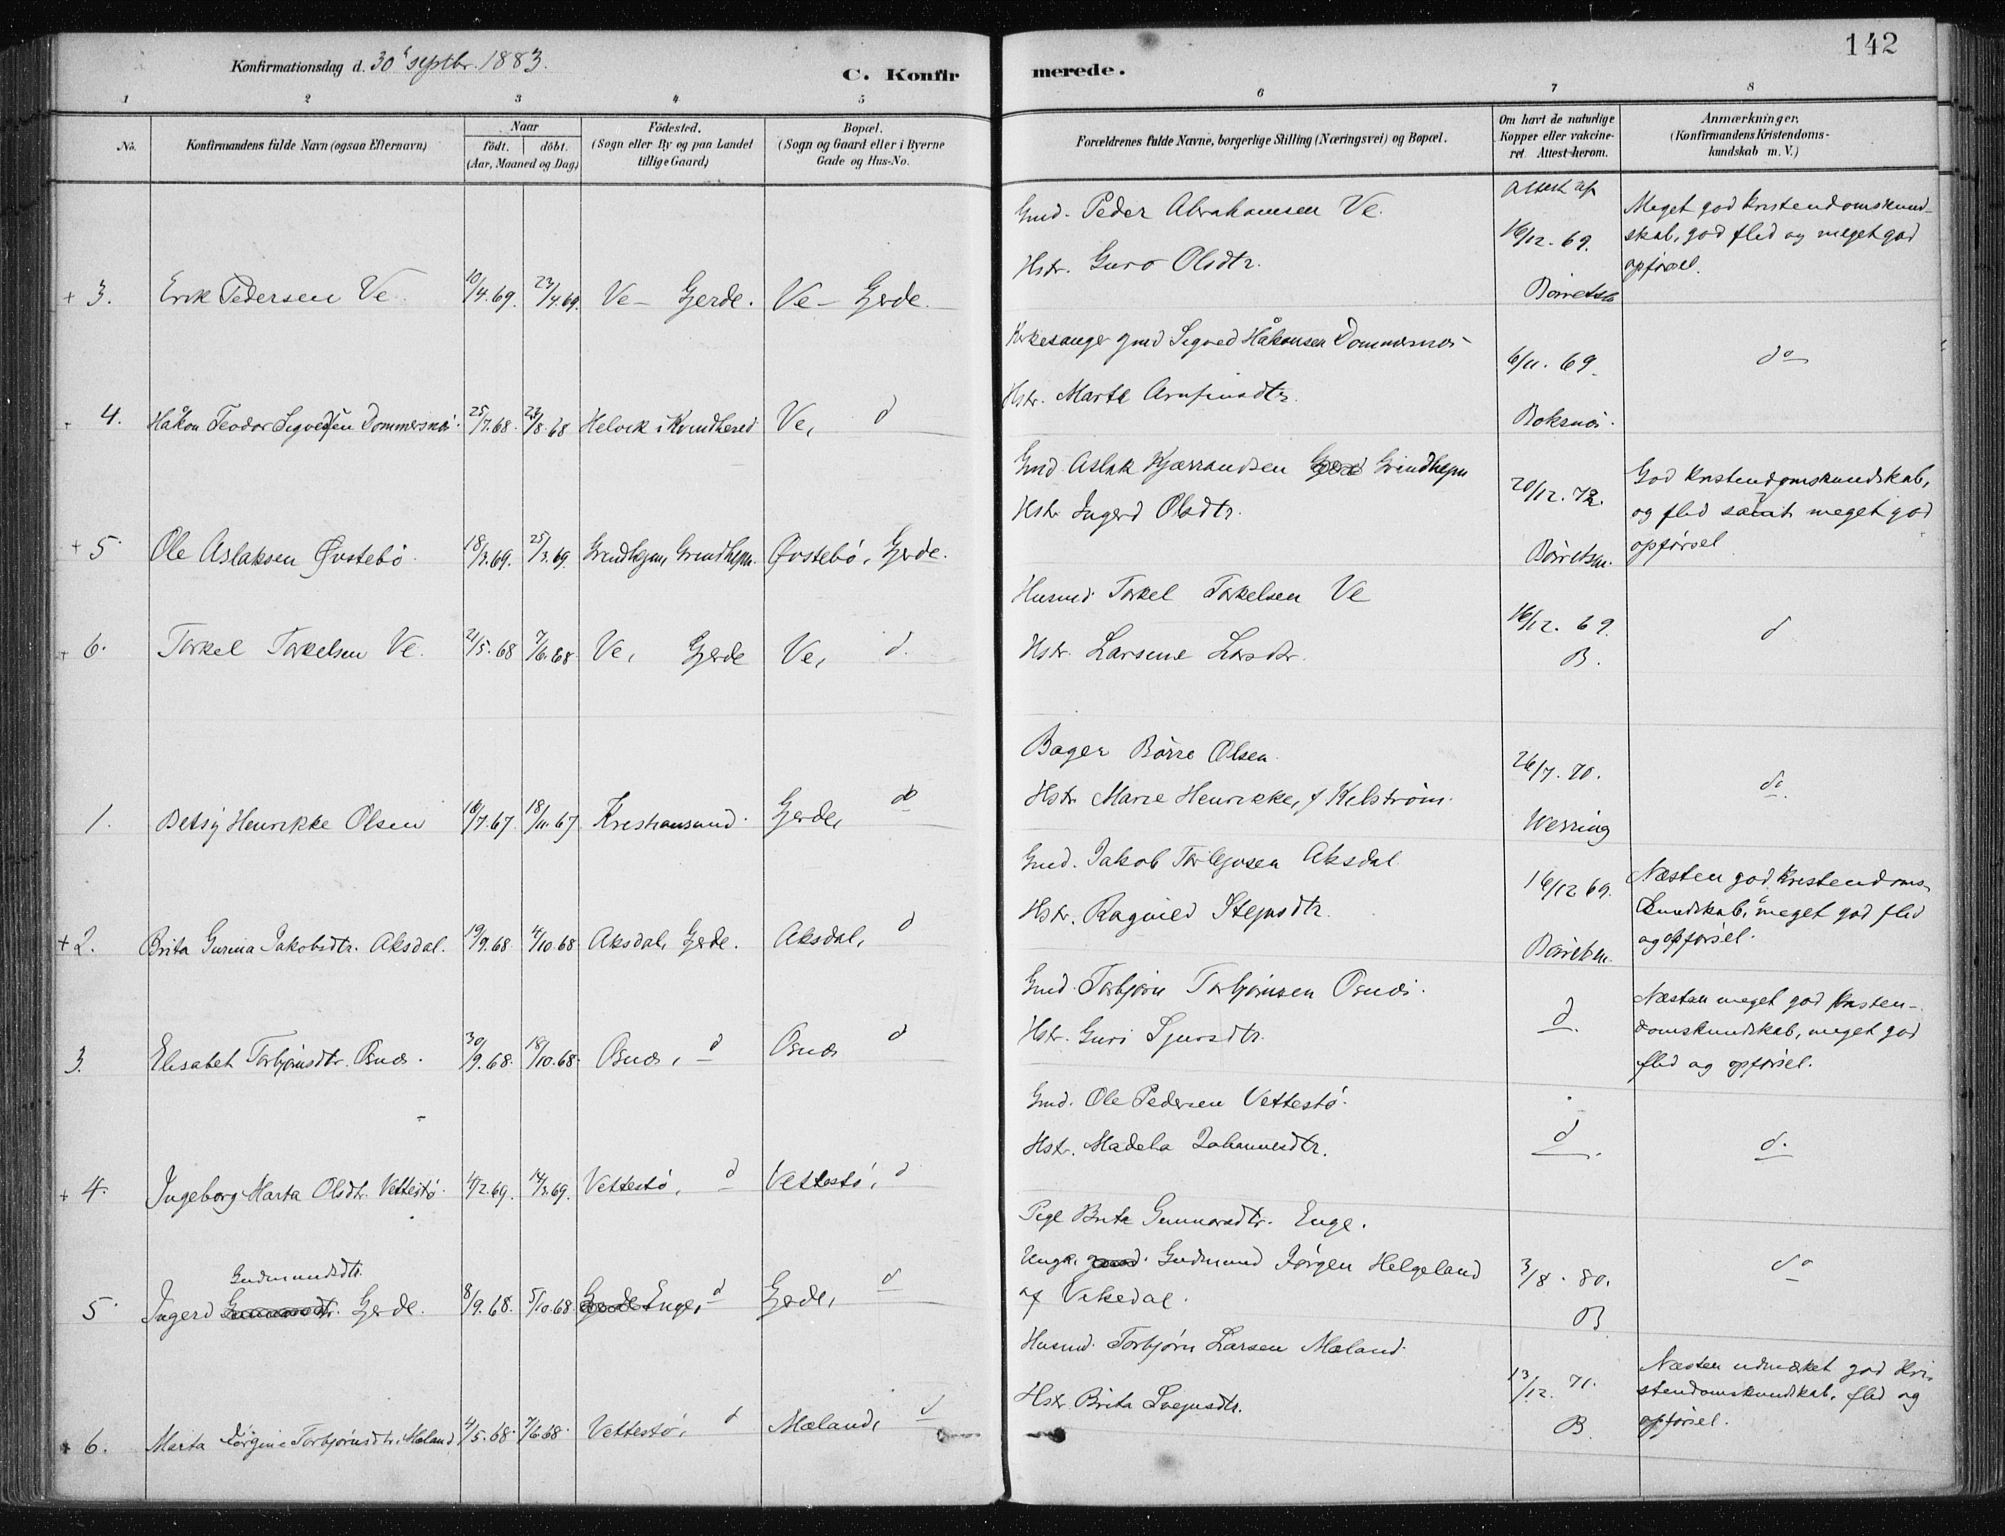 142
Konfirmationsdag d. 30 septbr. 1883.
C. Konfirmerede.
1 2 3 4 5 6 7 8
No.
Konfirmandens fulde Navn (ogsaa Efternavn)
Naar
födt. döbt.
(Aar, Maaned og Dag)
Födested.
(Sogn eller By og paa Landet
tillige Gaard)
Bopæl.
(Sogn og Gaard eller i Byerne
Gade og Hus-No.
Forældrenes fulde Navne, borgerlige Stilling (Næringsvei) og Bopæl.
Om havt de naturlige
Kopper eller vakcine-
ret. Attest herom.
Anmærkninger.
(Konfirmandens Kristendoms-
kundskab m. V.)
Gmd. Peder Abrahamsen Ve.
Hstr. Guro Olsdtr.
Attest af
16/12. 69.
Meget god kristendomskund-
skab, god flid og meget god
opførsel.
+ 3. Erik Pedersen Ve. 10/4.69. 23/4.69. Ve - Gjerde. Ve - Gjerde.
Kirkesanger gmd Sigved Håkonsen Dommersnæs
Hstr. Marta Arnfinndtr.
6/11. 69.
Boksnæs.
do
4. Håkon Teodor Sigvedsen Dommersnæs. 25/7.68. 23/8.68 Helvik i Kvindhered Ve, d
Gmd Aslak Kjærrandsen Grindhejm
Hstr Ingerd Olsdtr.
20/12. 72.
God kristendomskundskab,
og flid samt meget god
opførsel
+ 5. Ole Aslaksen Øvstebø. 18/3.69. 25/3.69. Grindhejm, Grindhejm. Øvstebø, Gjerde.
Husmd Torkel Torkelsen Ve
Hstr. Larsine Larsdtr.
16/12. 69.
B.
d
+ 6. Torkel Torkelsen Ve. 2/5.68 7/6.68 Ve, Gjerde Ve, d.
Bager Børre Olsen.
Hstr Marie Henrikke, f Kilstrøm.
26/7. 70.
Werring
do.
1. Betsy Henrikke Olsen 16/7.67. 18/11.67. Kristiansund. Gjerde, do
Gmd. Jakob Torbjønsen Aksdal
Hstr. Ragnild Stejnsdtr.
16/12 69.
Næsten god kristendoms-
kundskab, meget god flid
og opførsel.
+ 2. Brita Gurina Jakobsdtr. Aksdal. 19/9.68 4/10.68 Aksdal, Gjerde. Aksdal, d
Gmd. Torbjørn Torbjørnsen Osnæs.
Hstr. Guri Sjursdtr.
d.
Næsten meget god kristen-
domskundskab, meget god
flid og opførsel.
3. Elisabet Torbjørnsdtr. Osnæs. 30/9.68. 18/10.68. Osnæs, d Osnæs d
Gmd. Ole Pedersen Vettestø.
Hstr. Madela Johannesdtr.
d.
d.
+ 4. Ingeborg Marta Olsdtr. Vettestø. 4/2.69. 14/3.69. Vettestø, d Vettestø, d
Pige Brita Gunnarsdtr. Enge.
Ungk. Gudmund Jørgen Helgeland
af Vikedal.
3/8. 80.
B
do
Gudmundsdtr.
5 Ingerd Gerde. 8/9.68. 5/10.68 Enge, d Gjerde, d
Husmd. Torbjørn Larsen Mæland.
Hstr Brita Svejnsdtr.
13/12. 71.
B.
Næsten udmærket god kri-
stendomskundskab, flid og
opførsel.
+ 6. Marta Jørgine Torbjørnsdtr. Mæland 4/5.68. 7/6.68. Vettestø, d Mæland, d